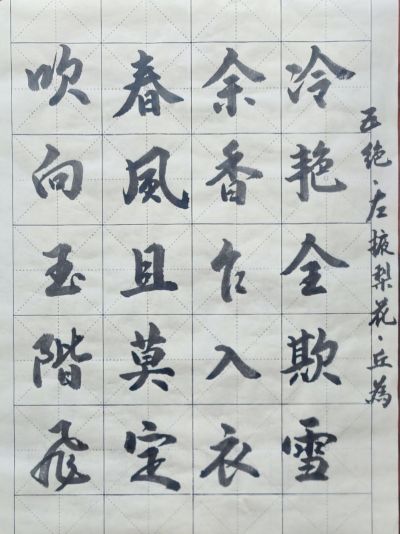 五绝·左掖梨花·丘為
冷艳全欺雪
余香乍入衣
春風且莫定
吹向玉階飛